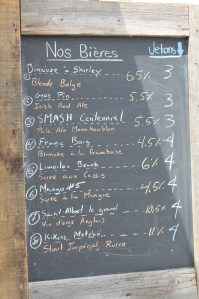 Nos Bières Jetons
① Dimitree à Shirley 6.5% 3
Blonde Belge
② Gros Pin 5.5% 3
Irish Red Ale
③ SMASH Centennial 5.5% 3
Pale Ale
④ Franc Bois 4.5% 4
Blanche à la Framboise
⑤ Limoilou Beach 6% 4
Sure aux Cassis
⑥ Mango #5 4,5% 4
Sure à la Mangue
⑦ Saint-Albert le grand 10,5% 4
Vin d'orge Anglais
⑧ 11% 4
Stout Impérial Russe